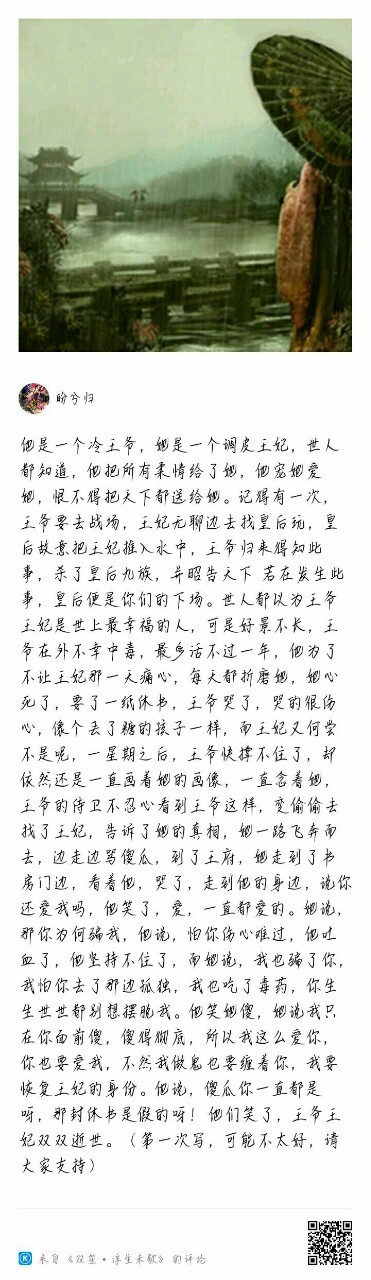 盼兮归
他是一个冷王爷，她是一个调皮王妃，世人
都知道，他把所有柔情给了她，他宠她爱
她，恨不得把天下都送给她。记得有一次，
王爷要去战场，王妃无聊边去找皇后玩，皇
后故意把王妃推入水中，王爷归来得知此
事，杀了皇后九族，并昭告天下 若在发生此
事，皇后便是你们的下场。世人都以为王爷
王妃是世上最幸福的人，可是好景不长，王
爷在外不幸中毒，最多活不过一年，他为了
不让王妃那一天痛心，每天都折磨她，她心
死了，要了一纸休书，王爷哭了，哭的很伤
心，像个丢了糖的孩子一样，而王妃又何尝
不是呢，一星期之后，王爷快撑不住了，却
依然还是一直画着她的画像，一直念着她，
王爷的侍卫不忍心看到王爷这样，变偷偷去
找了王妃，告诉了她的真相，她一路飞奔而
去，边走边骂傻瓜，到了王府，她走到了书
房门边，看着他，哭了，走到他的身边，说你
还爱我吗，他笑了，爱，一直都爱的。她说，
那你为何骗我，他说，怕你伤心难过，他吐
血了，他坚持不住了，而她说，我也骗了你，
我怕你去了那边孤独，我也吃了毒药，你生
生世世都别想摆脱我。他笑她傻，她说我只
在你面前傻，傻得彻底，所以我这么爱你，
你也要爱我，不然我做鬼也要缠着你，我要
恢复王妃的身份。他说，傻瓜你一直都是
呀，那封休书是假的呀！他们笑了，王爷王
妃双双逝世。（第一次写，可能不太好，请
大家支持）
来自《双笙·浮生未歇》的评论